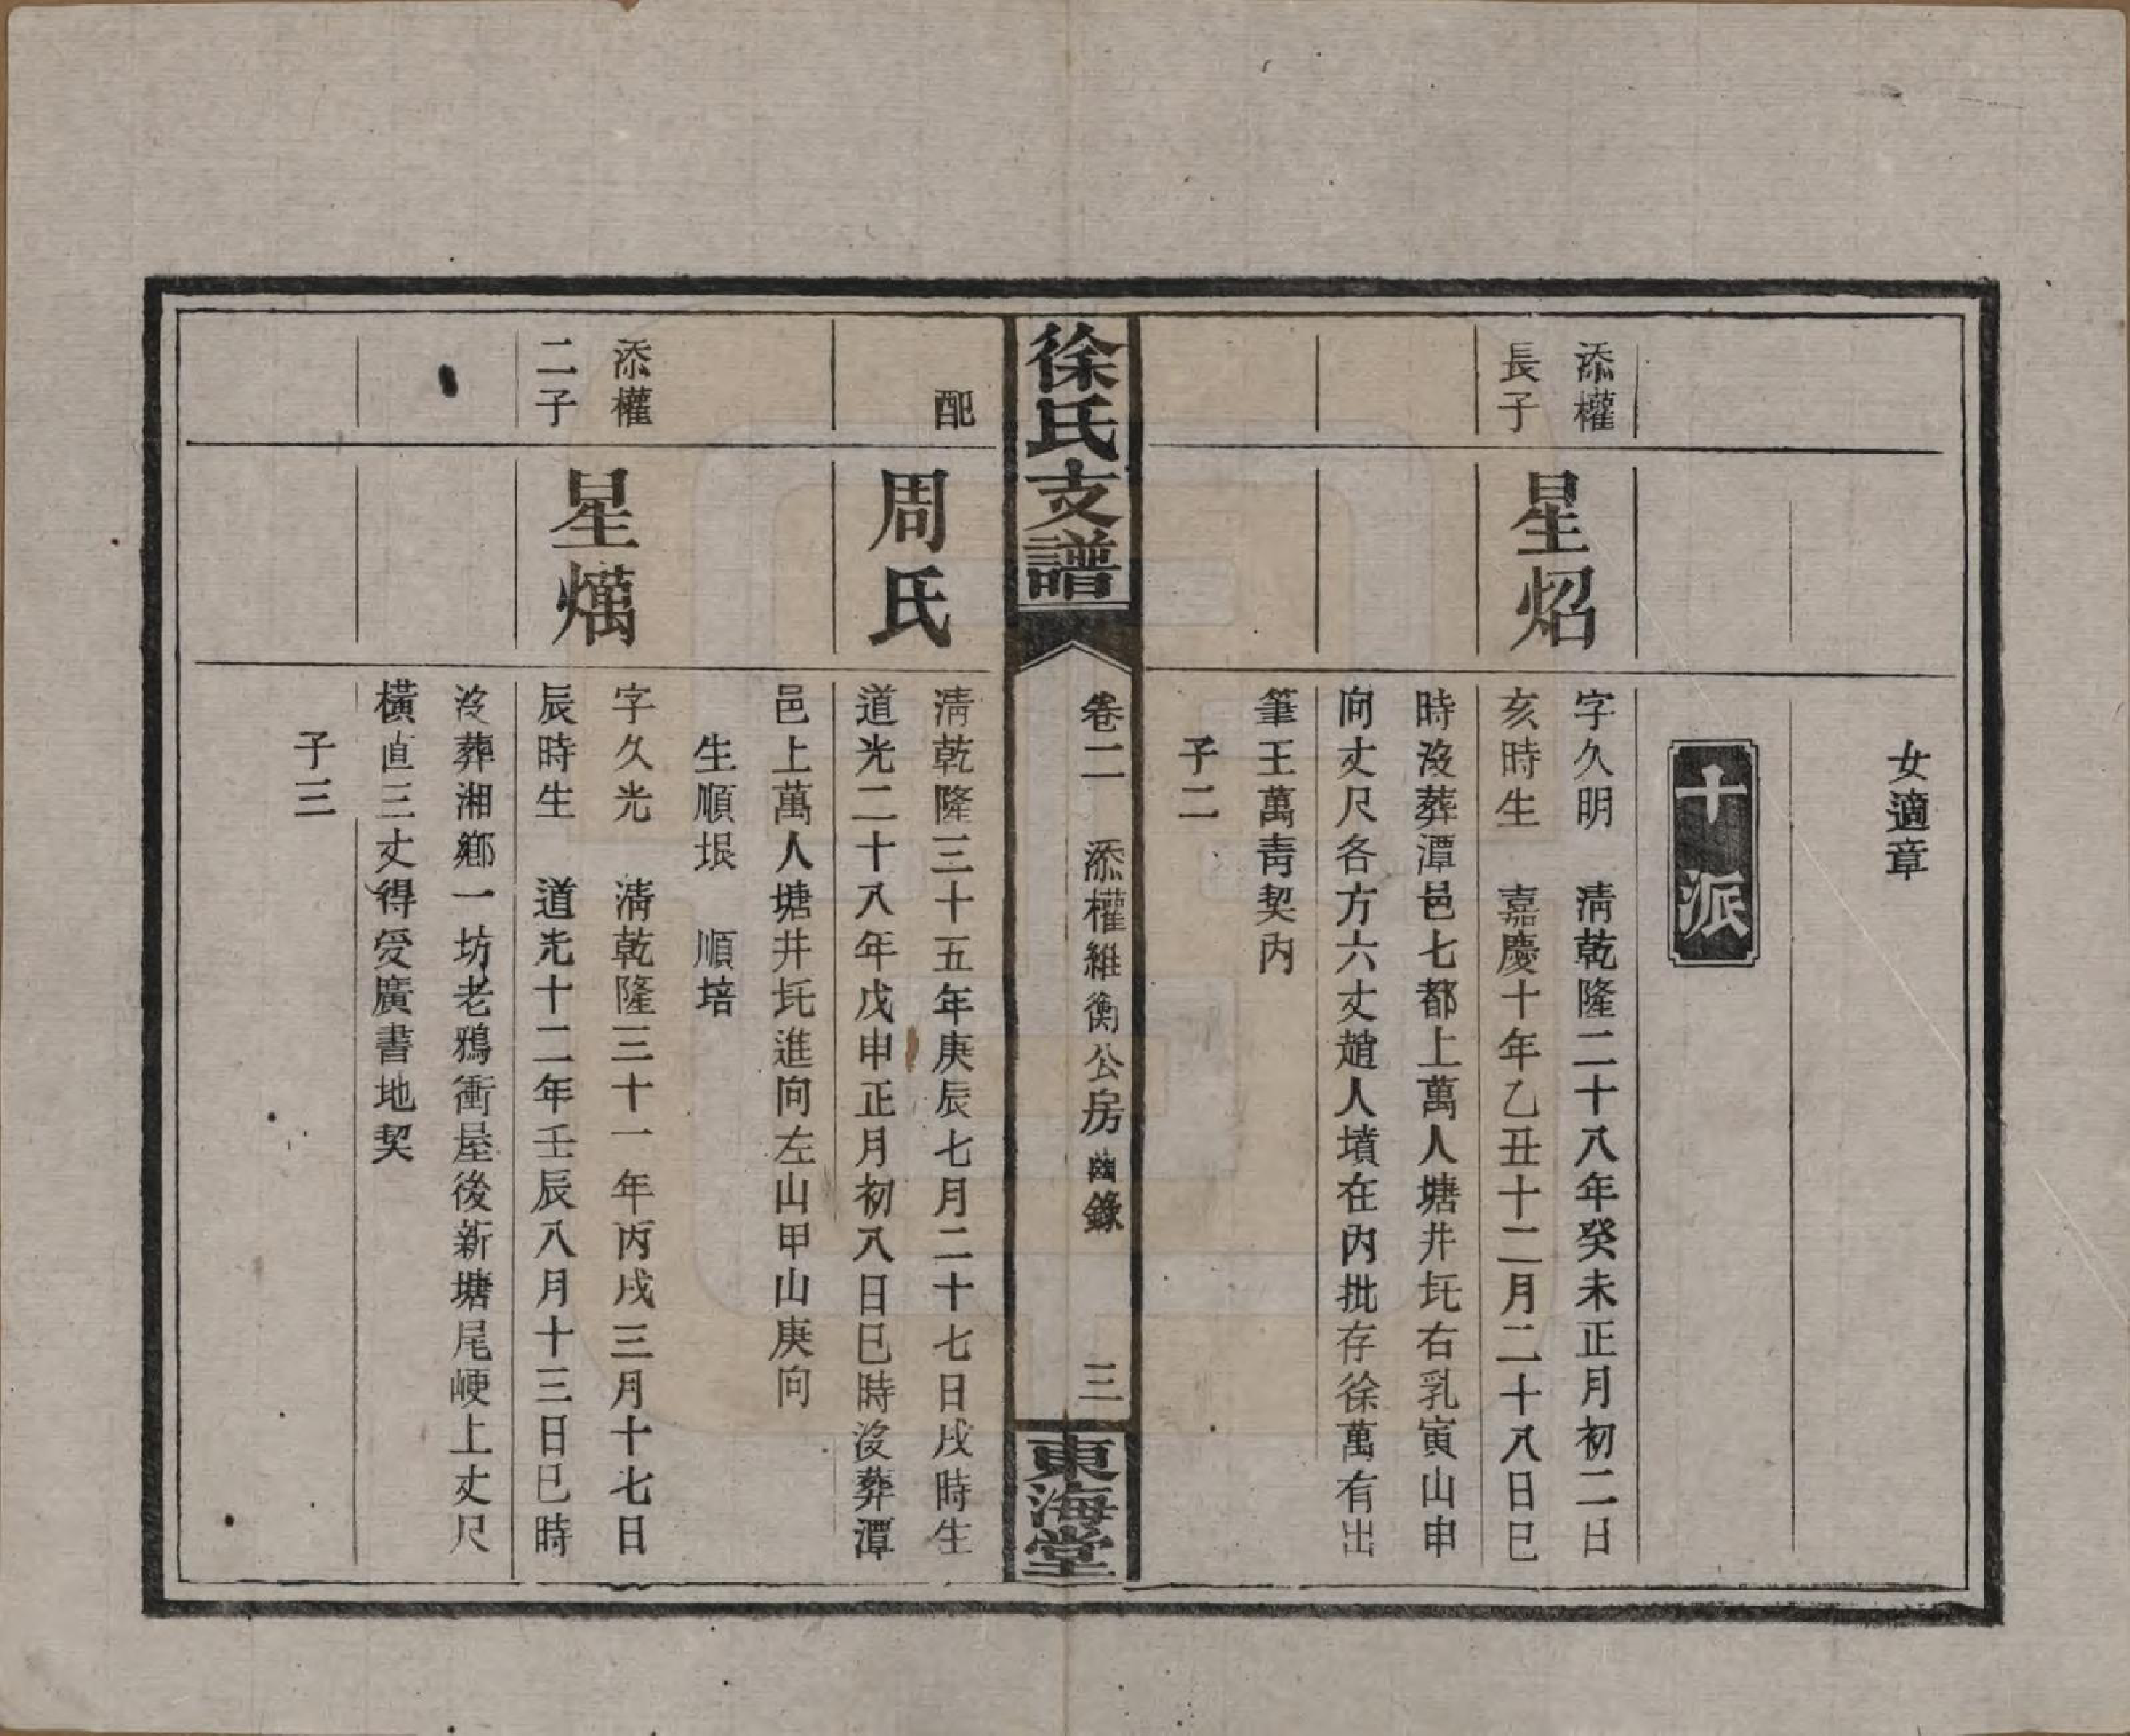 女適章
十派
添權
長子
星炤
字久明　淸乾隆二十八年癸未正月初二日
亥時生　嘉慶十年乙丑十二月二十八日巳
時沒葬潭邑七都上萬人塘井圫右乳寅山申
向丈尺各方六丈趙人墳在內批存徐萬有出
筆王萬靑契內
子二
徐氏支譜
卷二　添權維衡公房齒錄
三
東海堂
配
周氏
淸乾隆三十五年庚辰七月二十七日戌時生
道光二十八年戊申正月初八日巳時沒葬潭
邑上萬人塘井圫進向左山甲山庚向
生順垠　順培
添權
二子
星爄
字久光　淸乾隆三十一年丙戌三月十七日
辰時生　道光十二年壬辰八月十三日巳時
沒葬湘鄉一坊老鴉衝屋後新塘尾峺上丈尺
橫直三丈得受廣書地契
子三